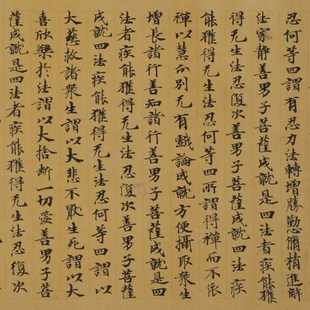 忍何等四謂有忍力法轉增勝勤備精進解
法寂靜善男子菩薩成就是四法者疾能獲
得无生法忍復次善男子菩薩成就四法疾
能獲得无生法忍何等四所謂得禪而不依
禪以慧分別无有戲論成就方便攝取衆生
增長諸行善知諸行善男子菩薩成就是四
法者疾能獲得无生法忍復次善男子菩薩
成就四法疾能獲得无生法忍何等四謂以
大慈救諸衆生謂以大悲不猒生死謂以大
喜欣樂於法謂以大捨斷一切愛善男子菩
薩成就是四法者疾能獲得无生法忍復次